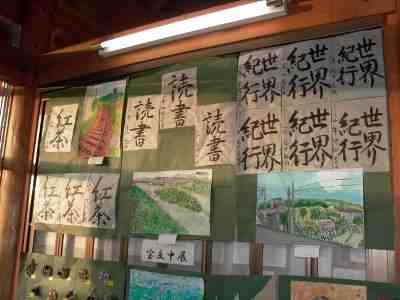 紅茶
読書
読書
読書
紀行
世界
紀行
世界
紀行
紀行
世界
紀行
世界
紀行
紅茶
紅茶
紅茶
宝立中展